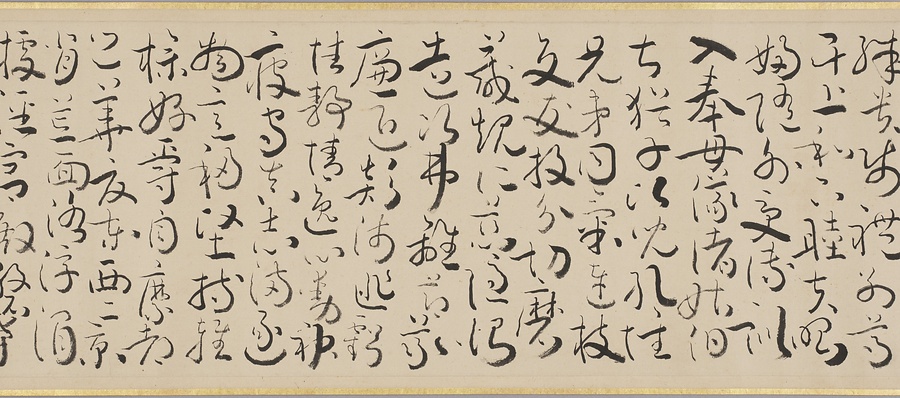 殊貴賤禮別尊
卑上和下睦夫唱
婦隨外受傅訓
入奉母儀諸姑伯
叔猶子比兒孔懷
兄弟同氣連枝
交友投分切磨
箴規仁慈隱惻
造次弗離節義
廉退顛沛匪虧
性靜情逸心動神
疲守真志滿逐
物意移堅持雅
操好爵自縻都
邑華夏東西二京
背芒面洛浮渭
據涇宮殿盤鬱